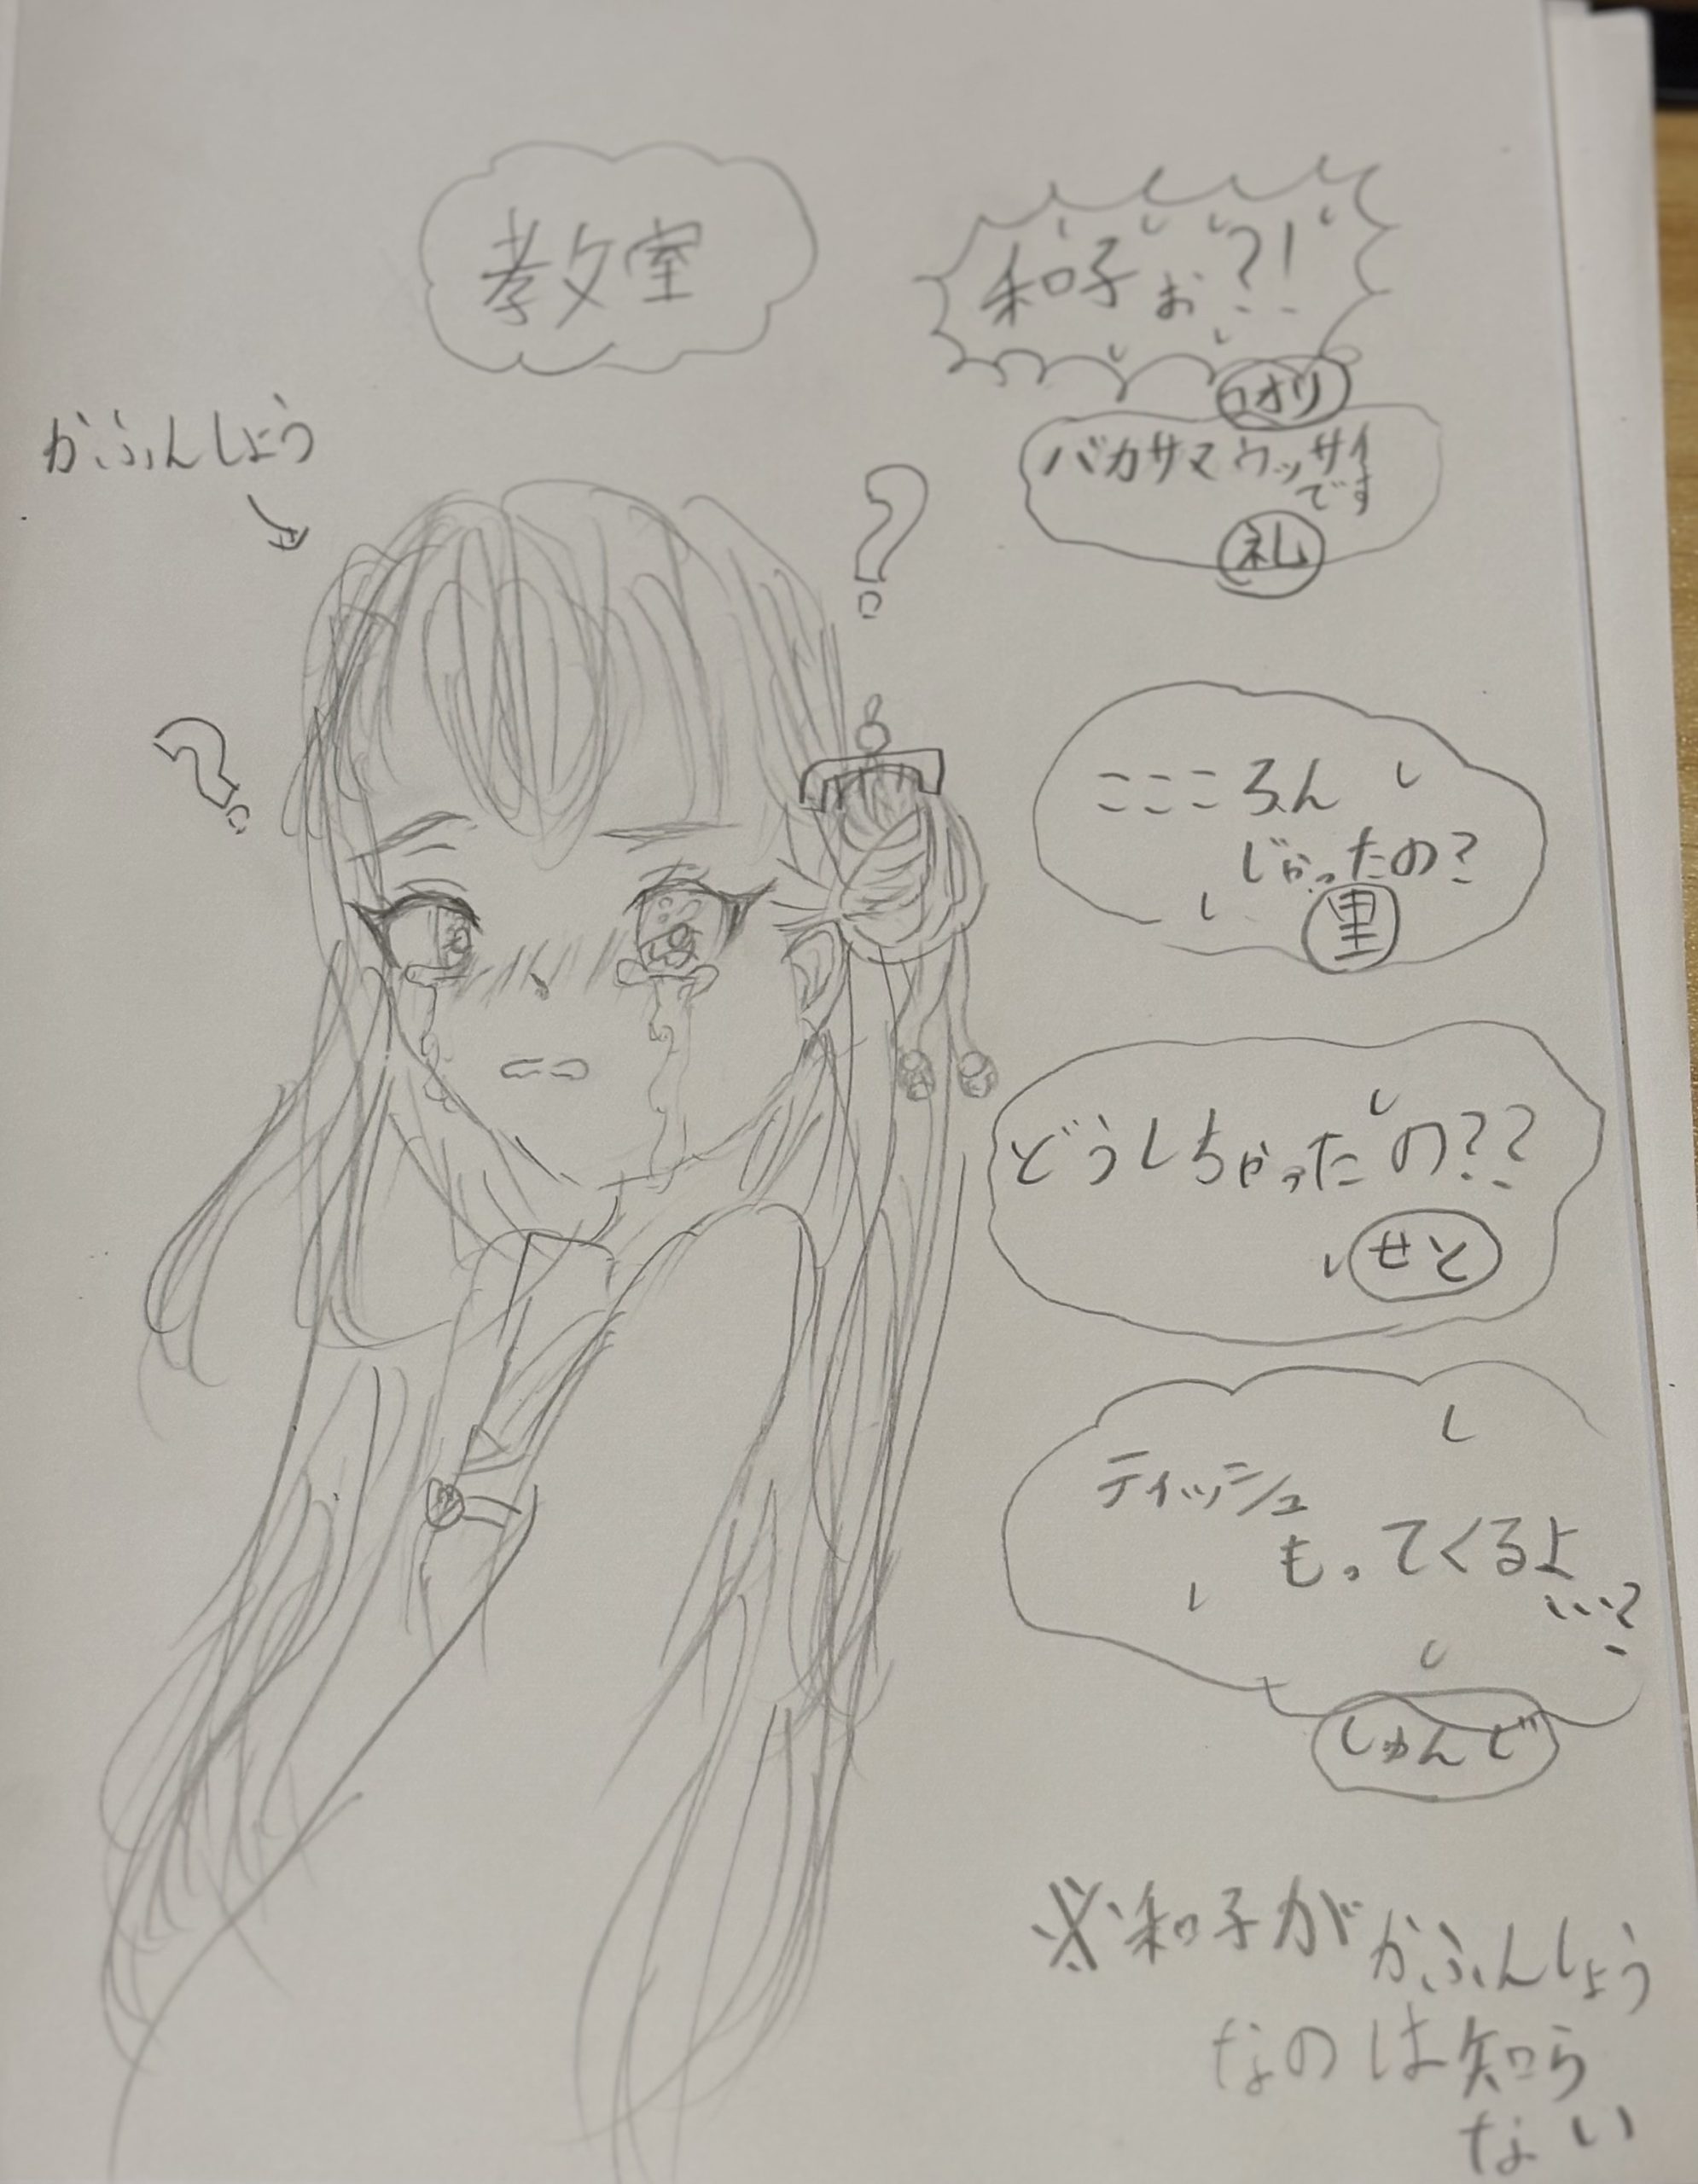 教室
和子ぉ?!
かふんしょう
バカサマウッサイ
です
礼
?
?
こころん
じゃったの?
里
どうしちゃったの??
せと
ティッシュ
もってくるよ
…?
しゅんど
※和子がかふんしょう
なのは知ら
ない